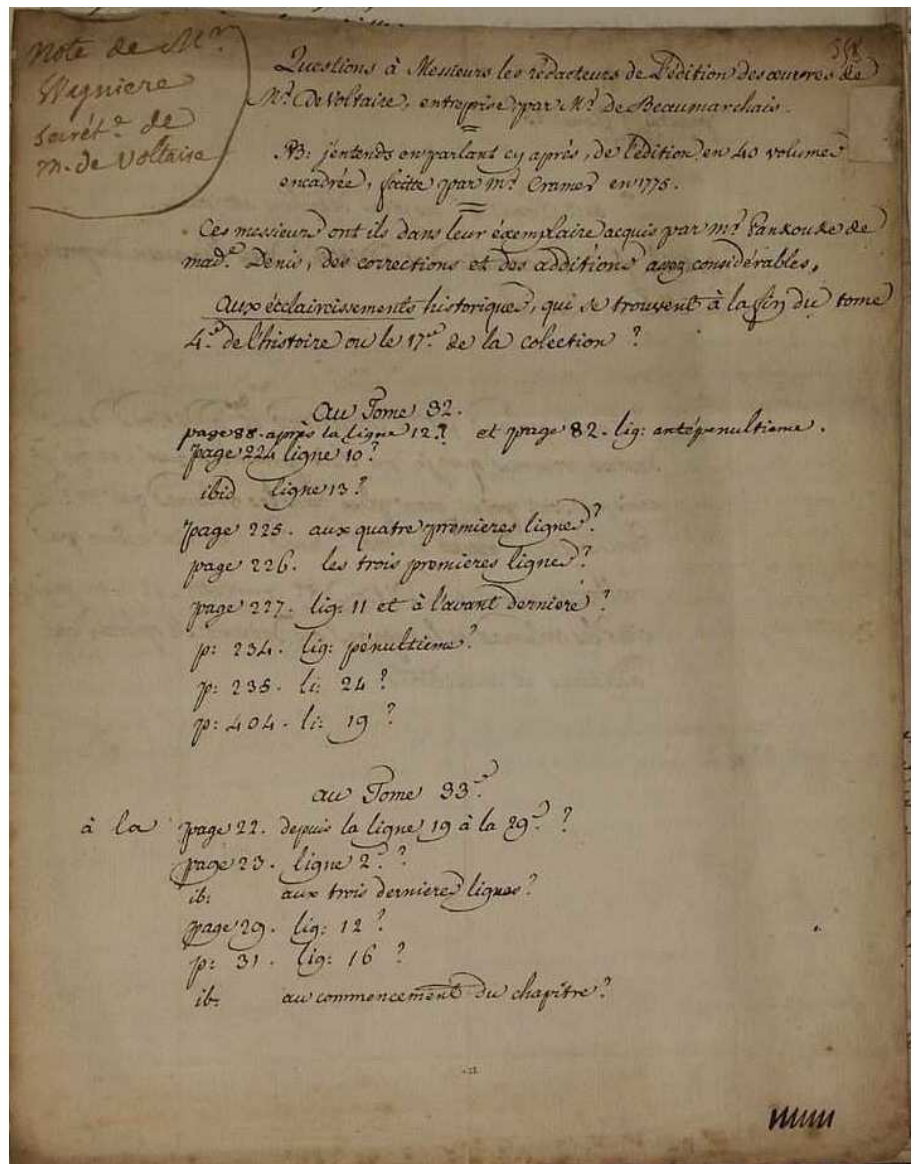 Note de Mr.
Wagniere
Secrét.e de
M. de Voltaire
Questions à Messieurs les rédacteurs de L'édition des œuvres de
Mr. De Voltaire, entreprise par Mr. De Beaumarchais.
NB: j'entends en parlant cy après, de l'édition en 40 volumes
encadrée, faitte par mr. Cramer en 1775.
Ces messieurs ont ils dans leur éxemplaire acquis par mr. Pankouke de
mad.e Denis, des corrections et des additions assez considérables,
aux éclaircissements historiques, qui se trouvent à la fin du tome
4.e de l'histoire ou le 17.e de la colection ?
Au Tome 32.
page 88. après la ligne 12.? et page 82. lig: antépenultieme.
page 224 ligne 10 ?
ibid ligne 13 ?
page 225. aux quatre premieres lignes ?
page 226. les trois premieres lignes ?
page 227. lig: 11 et à l'avant derniere ?
p: 234. lig: pénultieme ?
p: 235. li: 24 ?
p: 404. li: 19 ?
au Tome 33.e
à la page 22. depuis la ligne 19 à la 29.e ?
page 23. ligne 2.e ?
ib: aux trois dernieres lignes ?
page 29. lig: 12 ?
p: 31. lig: 16 ?
ib: au commencement du chapitre ?